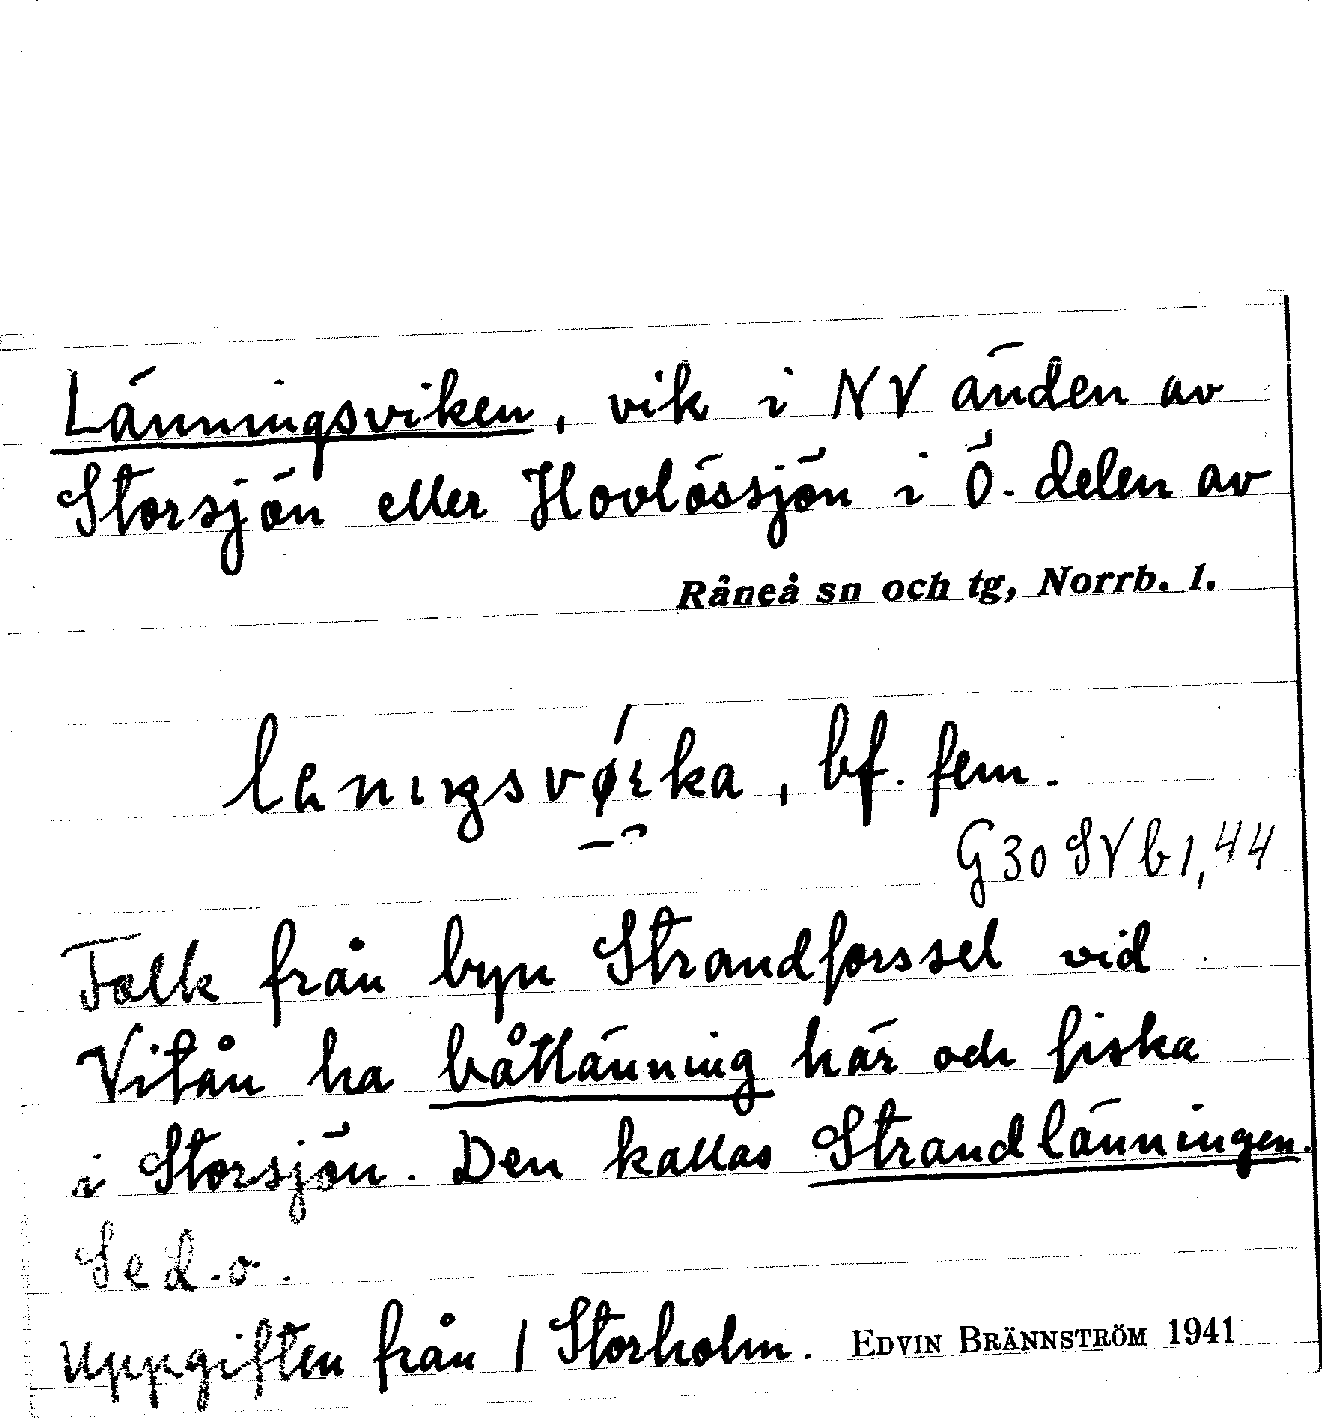 Länningsviken, vik i NV änden av
Storsjön eller Hovlössjön i Ö. delen av
Råneå sn och tg, Norrb. l.
bf. fem.
G 30 SV b 1, 44
Folk från byn Strandforssel vid
Vitån ha båtlänning här och fiska
i Storsjön. Den kallas Strandlänningen.
Se d.o.
Uppgiften från 1 Storholm. EDVIN BRÄNNSTRÖM 1941